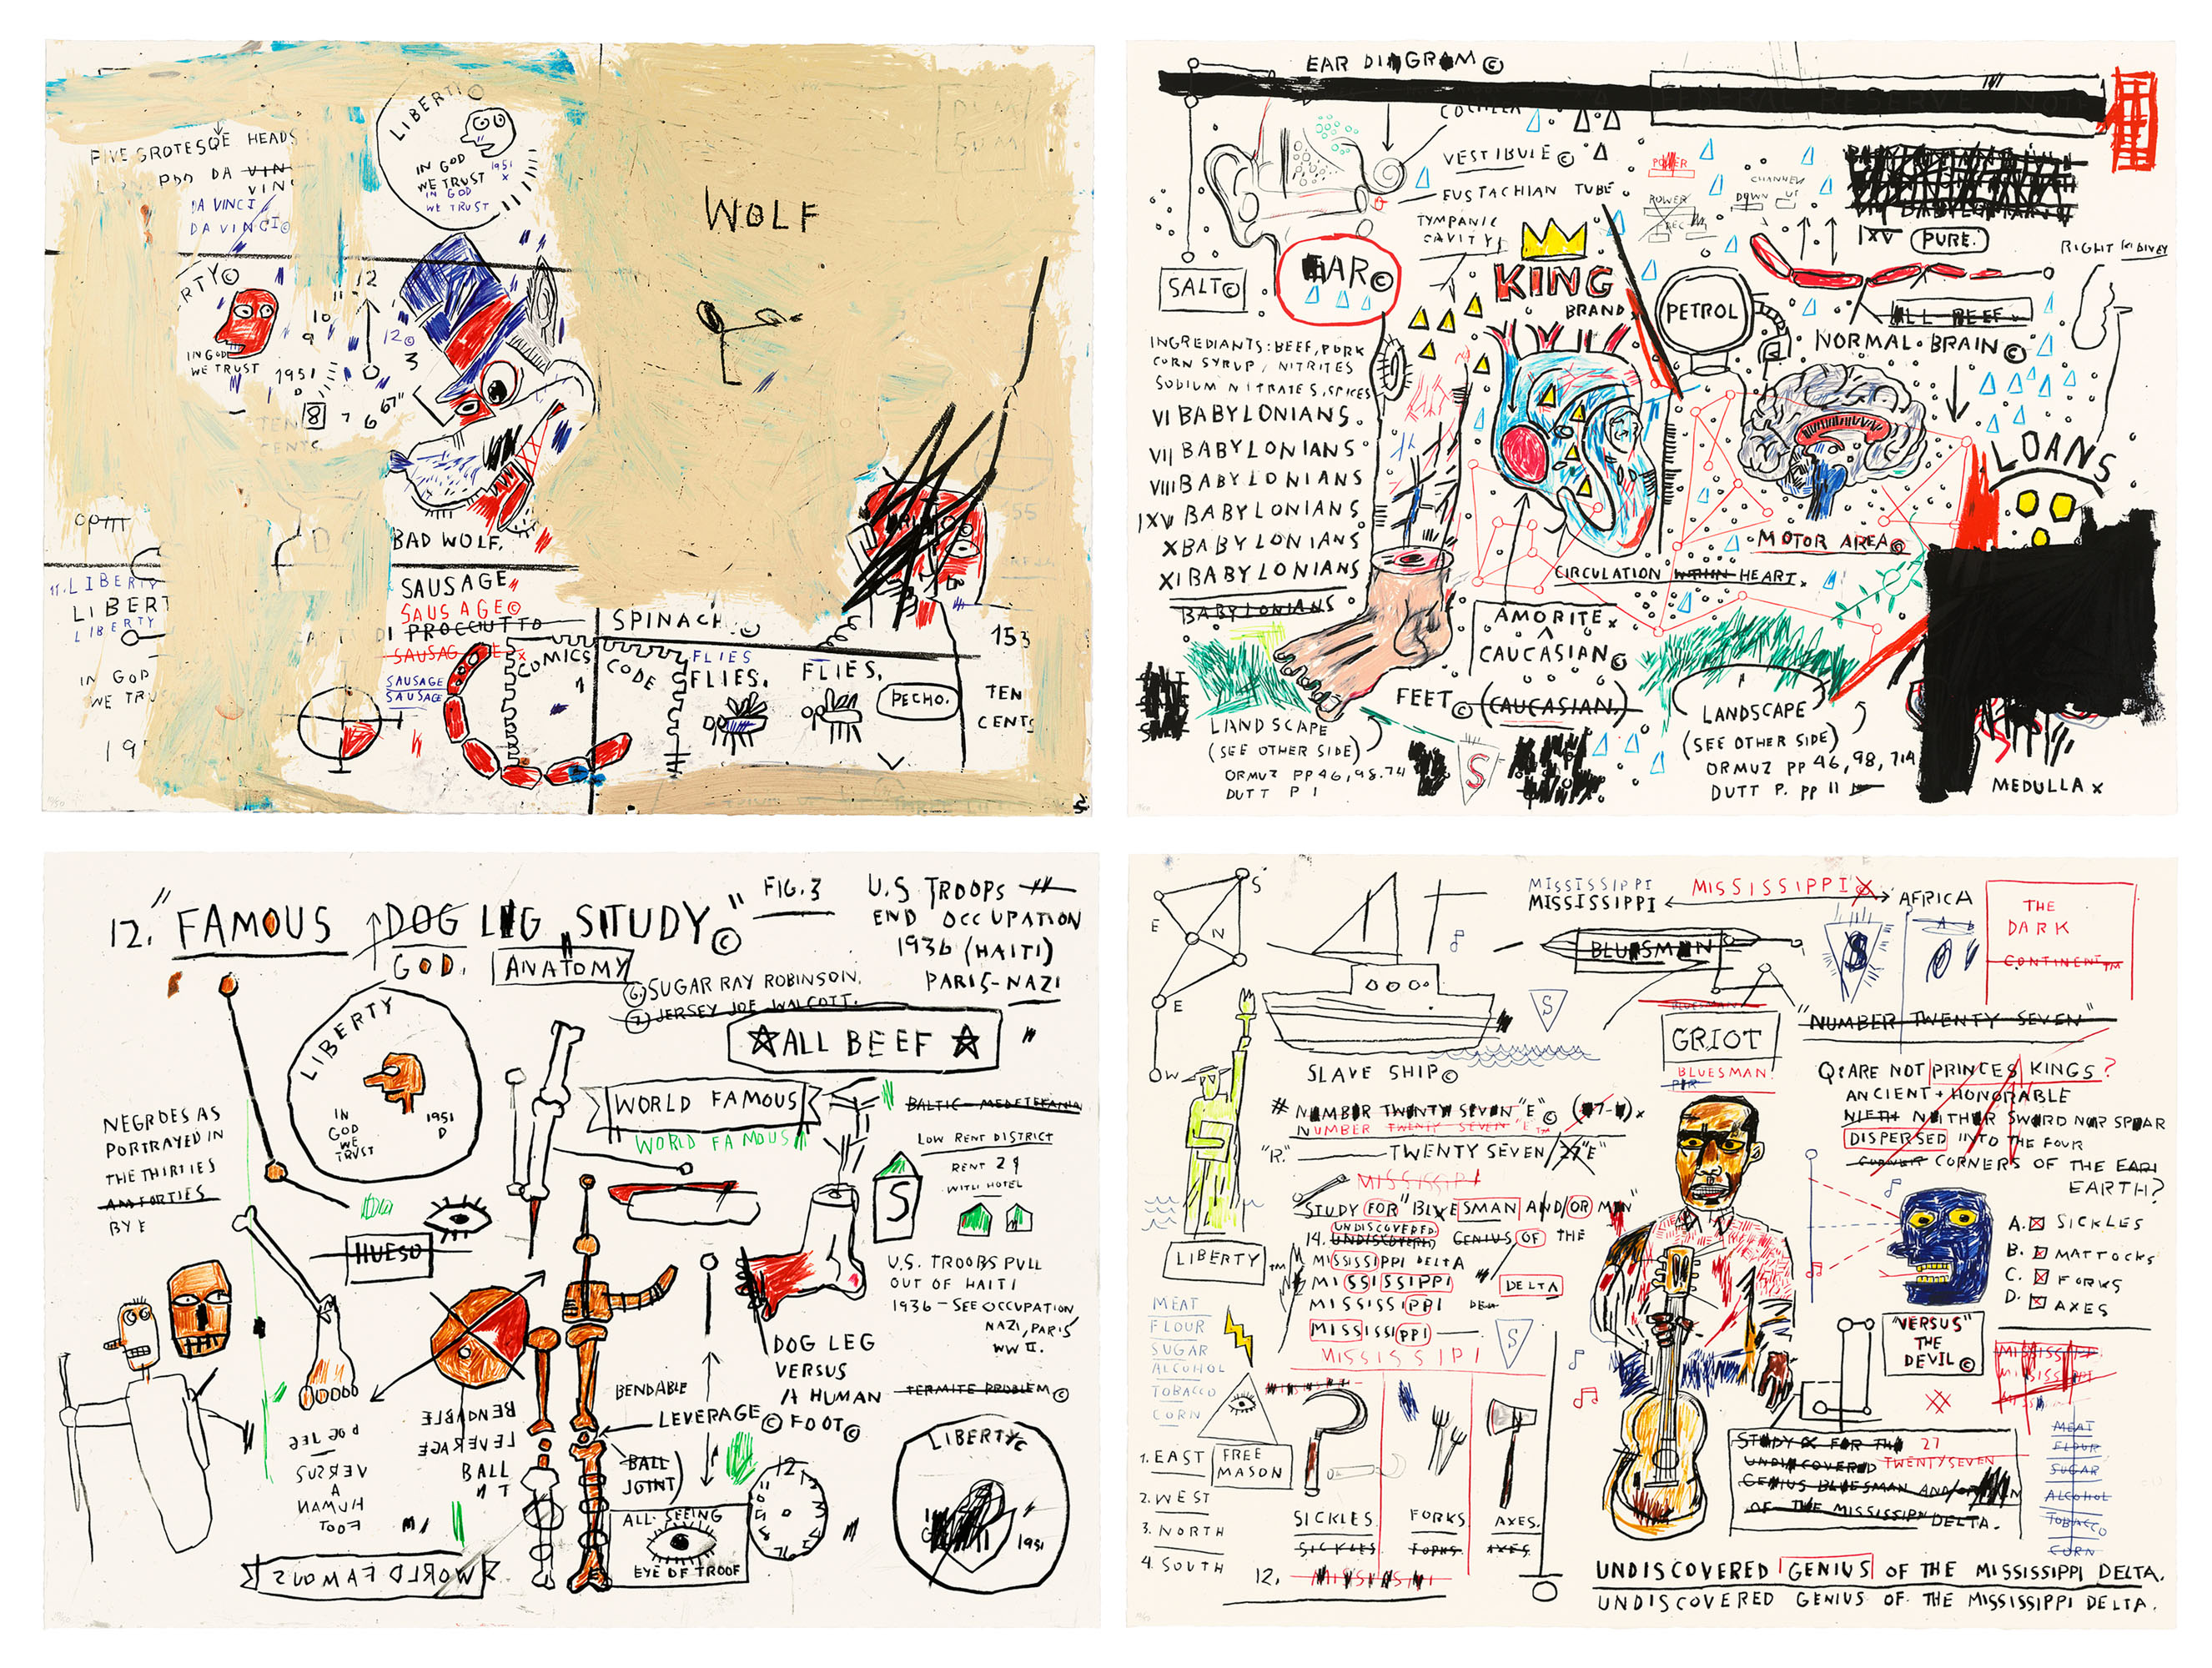 FIVE GROTESQE HEADS
DA VIN
VIN
DA VINCI
DA VINCI©
LIBERTI©
IN GOD
WE TRUST
1951
X
IN GOD
WE TRUST
WOLF
RTY©
IN GOD
WE TRUST
12
11
10
9
12©
3
1951
D
8
7
6
67"
TEN
CENTS.
BAD WOLF.
11. LIBERTY
LIBERT
LIBERTY
IN GOD
WE TRU
19
SAUSAGE"
SAUSAGE©
DI PROCCIUTTO
SAUSAG E x
SAUSAGE
SAUSAGE
SPINACH.©
COMICS
CODE
FLIES
FLIES.
FLIES.
PECHO.
153
TEN
CENTS
EAR DIAGRAM©
COCHLEA
VESTIBULE©
EUSTACHIAN TUBE
TYMPANIC
CAVITY
SALT©
EAR©
KING
BRAND
POWER
POWER
REC
CHANNEL
DOWN UP
BABYLONIANS
IXV PURE.
RIGHT KIDNEY
PETROL
ALL BEEF
NORMAL BRAIN©
INGREDIANTS: BEEF, PORK
CORN SYRUP, NITRITES
SODIUM NITRATES, SPICES
VI BABYLONIANS.
VII BABYLONIANS
VIII BABYLONIANS
IXV BABYLONIANS
X BABYLONIANS
XI BABYLONIANS
BABYLONIANS
LOANS
MOTOR AREA©
CIRCULATION WITHIN HEART.
AMORITE x
CAUCASIAN©
FEET© (CAUCASIAN.)
LANDSCAPE
(SEE OTHER SIDE)
ORMUZ PP 46, 98. 74
DUTT P 1
S
LANDSCAPE
(SEE OTHER SIDE)
ORMUZ PP 46, 98, 71A
DUTT P. PP 11
MEDULLA x
12. "FAMOUS DOG LEG STUDY"©
FIG. 3
GOD.
ANATOMY
U.S TROOPS
END OCCUPATION
1936 (HAITI)
PARIS-NAZI
6. SUGAR RAY ROBINSON.
7. JERSEY JOE WALCOTT.
ALL BEEF
LIBERTY
IN
GOD
WE
TRUST
1951
D
WORLD FAMOUS
WORLD FAMOUS
LOW RENT DISTRICT
RENT 29
WITH HOTEL
S
NEGROES AS
PORTRAYED IN
THE THIRTIES
AN FORTIES
BY E
HUESO
U.S. TROOPS PULL
OUT OF HAITI
1936 - SEE OCCUPATION
NAZI, PARIS
WW II.
DOG LEG
VERSUS
A HUMAN
FOOT©
TERMITE PROBLEM©
BENDABLE
LEVERAGE©
BALL
JOINT
BENDABLE
LEVERAGE
BALL
DOG LEG
VERSUS
A
HUMAN
FOOT
ALL SEEING
EYE OF TROOF
LIBERTY©
1951
WORLD FAMOUS
S
E
N
E
W
MISSISSIPPI
MISSISSIPPI
MISSISSIPPI
AFRICA
THE
DARK
CONTINENT™
BLUESMAN
S
S
SLAVE SHIP©
BLUESMAN
GRIOT
BLUESMAN
"NUMBER TWENTY SEVEN"
# NUMBER TWENTY SEVEN "E"©
NUMBER TWENTY SEVEN "E"™
"R." TWENTY SEVEN/27"E"
MISSISSIPI
STUDY FOR "BLUESMAN AND/OR MAN"
UNDISCOVERED
14. UNDISCOVERED GENIUS OF THE
MISSISSIPPI DELTA
MISSISSIPPI
DELTA
MISSISSIPPI
MISSISSIPPI
S
MISSISSIPI
Q: ARE NOT PRINCES KINGS?
ANCIENT + HONORABLE
NIETH NEITHER SWORD NOR SPEAR
DISPERSED INTO THE FOUR
CORNER CORNERS OF THE EARI
EARTH?
A. SICKLES
B. MATTOCKS
C. FORKS
D. AXES
LIBERTY™
MEAT
FLOUR
SUGAR
ALCOHOL
TOBACCO
CORN
1. EAST
FREE
MASON
2. WEST
3. NORTH
4. SOUTH
SICKLES
SICKLES
FORKS
FORKS
AXES.
AXES
12.
"VERSUS"
THE
DEVIL©
MISSISSIPPI
STUDY FOR THE 27
UNDISCOVERED TWENTYSEVEN
GENIUS BLUESMAN AND/OR
OF THE MISSISSIPPI DELTA.
MEAT
FLOUR
SUGAR
ALCOHOL
TOBACCO
CORN
UNDISCOVERED GENIUS OF THE MISSISSIPPI DELTA.
UNDISCOVERED GENIUS OF THE MISSISSIPPI DELTA.